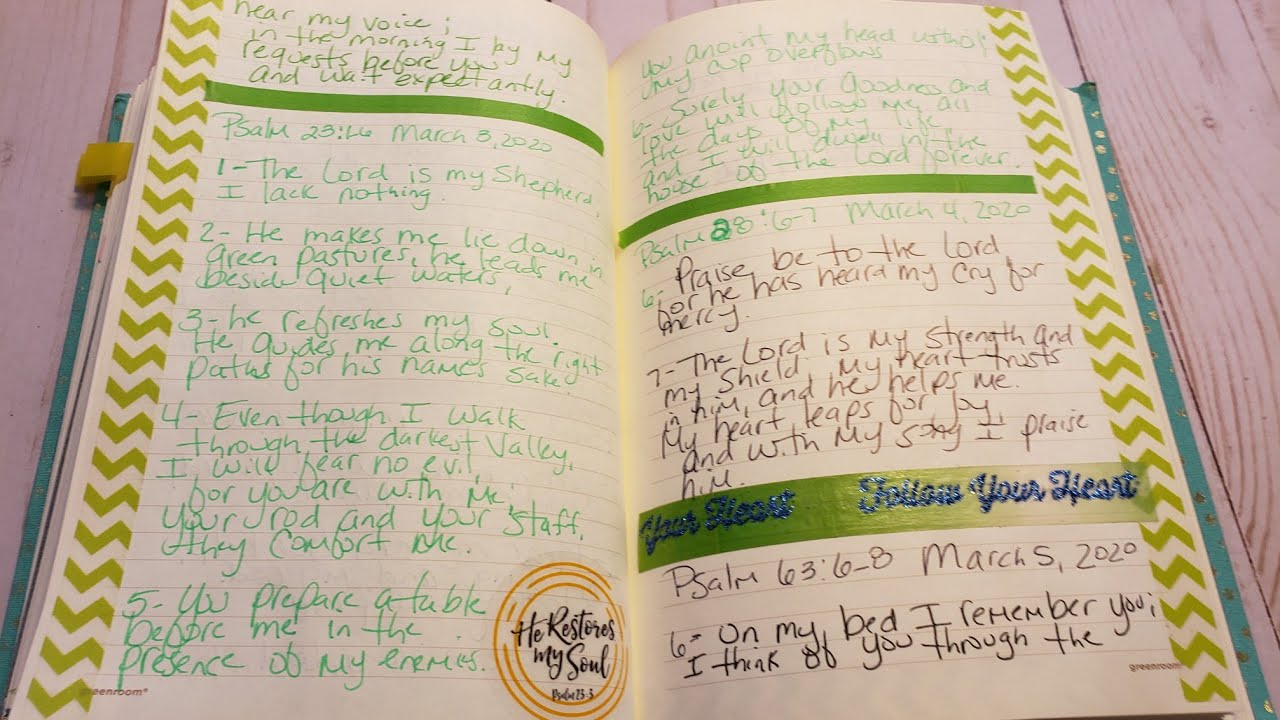 hear my voice;
in the morning I lay my
requests before you
and wait expectantly.
Psalm 23:1-6 March 3, 2020
1- The Lord is my Shepherd,
I lack nothing.
2- He makes me lie down in
Green pastures, he leads me
beside quiet waters,
3- he refreshes my soul.
He guides me along the right
paths for his names sake.
4- Even though I walk
through the darkest Valley,
I will fear no evil,
for you are with me;
Your rod and your staff,
they comfort me.
5- You prepare a table
before me in the
presence of my enemies.
He Restores
my Soul
Psalm 23:3
greenroom®
you anoint my head with oil;
my cup overflows
6- Surely your Goodness and
love will follow me all
the days of my life
and I will dwell in the
house of the Lord forever.
Psalm 28:6-7 March 4, 2020
6- Praise be to the Lord
for he has heard my cry for
mercy.
7- The Lord is my strength and
my Shield, My heart trusts
in him, and he helps me.
My heart leaps for joy,
and with my song I praise
him.
Your Heart Follow Your Heart
Psalm 63:6-8 March 5, 2020
6- On my bed I remember you;
I think of you through the
greenroom®